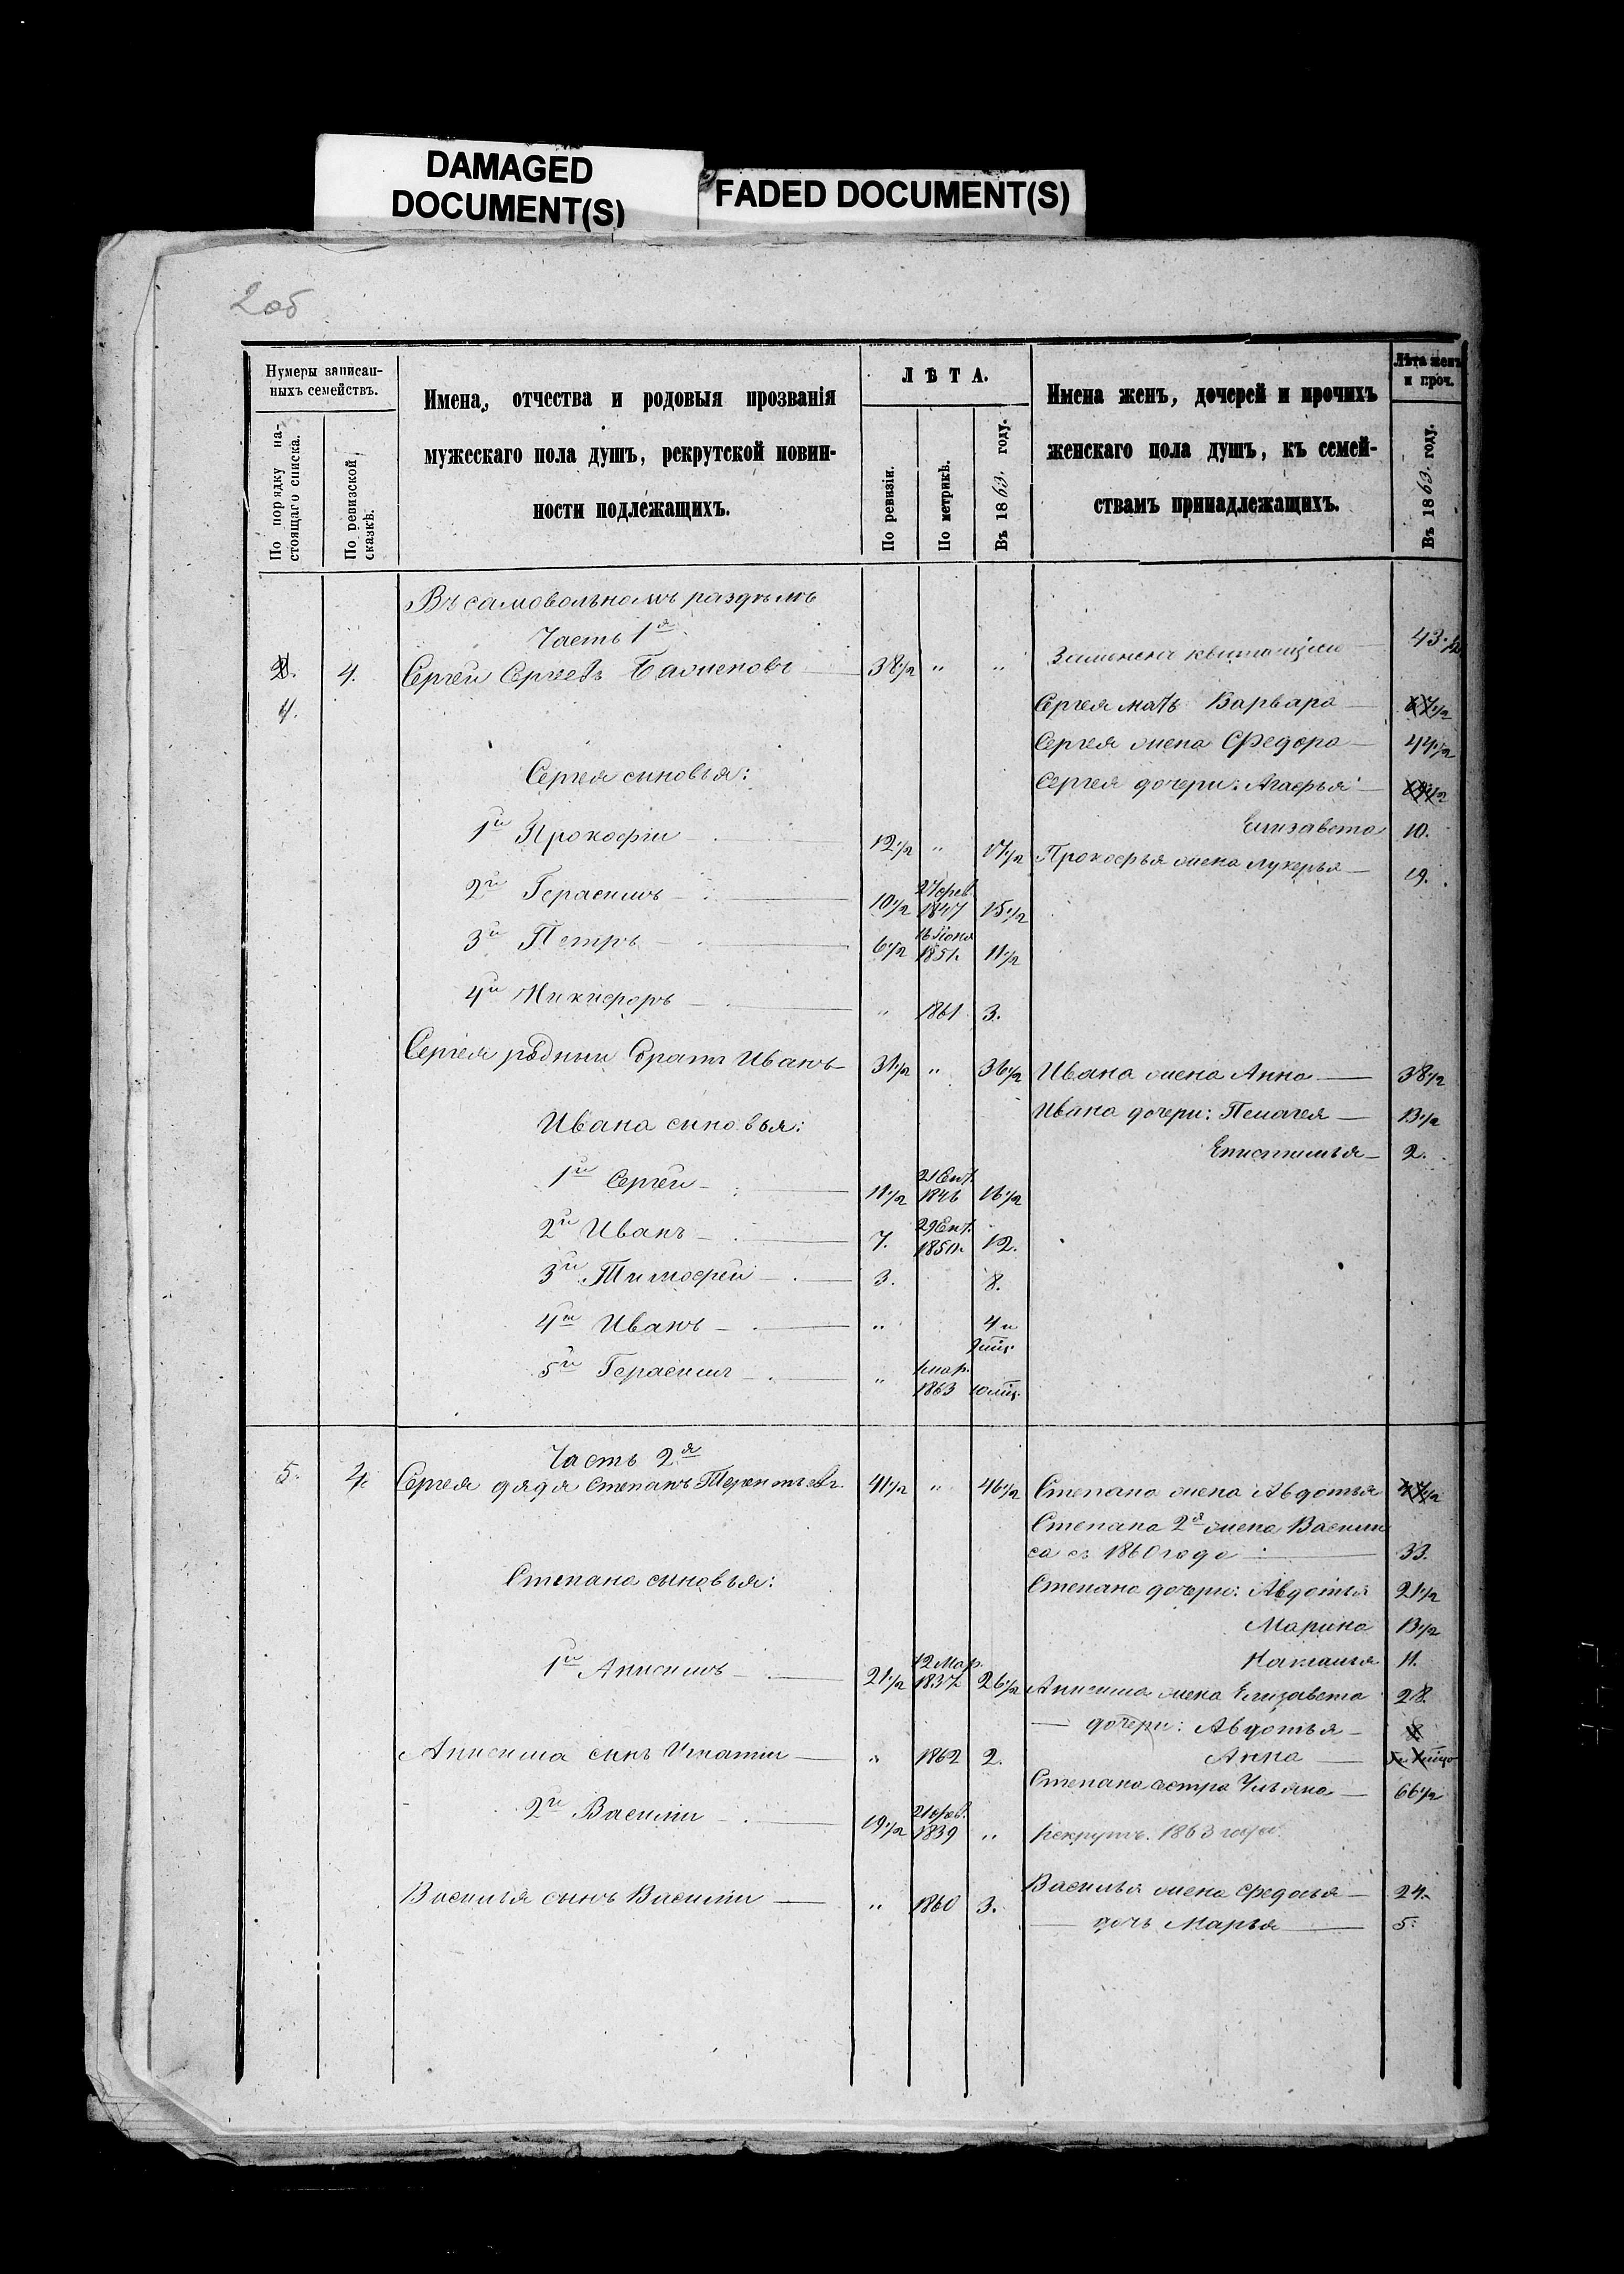 DAMAGED
DOCUMENT(S)
FADED DOCUMENT(S)
2об
Нумеры записан-
ныхъ семействъ.
По порядку на-
стоящаго списка.
По ревизской
сказкѣ.
Имена, отчества и родовыя прозванія
мужескаго пола душъ, рекрутской повин-
ности подлежащихъ.
ЛѢТА.
По ревизіи.
По метрикѣ.
Въ 1863. году.
Имена женъ, дочерей и прочихъ
женскаго пола душъ, къ семей-
ствамъ принадлежащихъ.
Лѣта женъ
и проч.
Въ 1863. году.
Въ самовольномъ раздѣлѣ
Часть 1я
4. Сергѣй Сергеевъ 38½ " " 43½
4. Сергея мать Варвара
Сергея жена Федора 44½
Сергея сыновья: Сергея дочери: Агафья
Елизавета 10.
1й Прокофій 12½ " 17½ Прокофья жена Лукерья 19.
2й Герасимъ 10½ 27 фев. 1847 15½
3й Петръ 6½ 16 Іюня 1851. 11½
4й Никифоръ " 1861 3.
Сергея родный братъ Иванъ 31½ " 36½ Ивана жена Анна 38½
Ивана сыновья: Ивана дочери: Пелагея 13½
Епистимья 2.
1й Сергѣй 11½ 21 Сент. 1846 16½
2й Иванъ 7. 29 Сент. 12.
3й Тимофей 3. 8.
4й Иванъ " 4 и
5й Герасимъ " 1863 10 мѣц.
Часть 2я
5. 4. Сергея дядя Степанъ Терентьевъ 41½ " 46½ Степана жена Авдотья 47½
Степана 2я жена Васили
са съ 1860 года 33.
Степана сыновья: Степана дочери: Авдотья 21½
Марина 13½
Наталья 11.
1й Анисимъ 21½ 12 Мар. 1837 26½ Анисима жена Елизавета 28.
дочери: Авдотья 8
Анисима сынъ Игнатій " 1862 2. Анна
Степана сестра Ульяна 66½
2й Василій 19½ 21 фев. 1839 " Рекрутъ 1863 года.
Василья сынъ Василій " 1860 3. Василья жена Федосья 24.
дочь Марья 5.